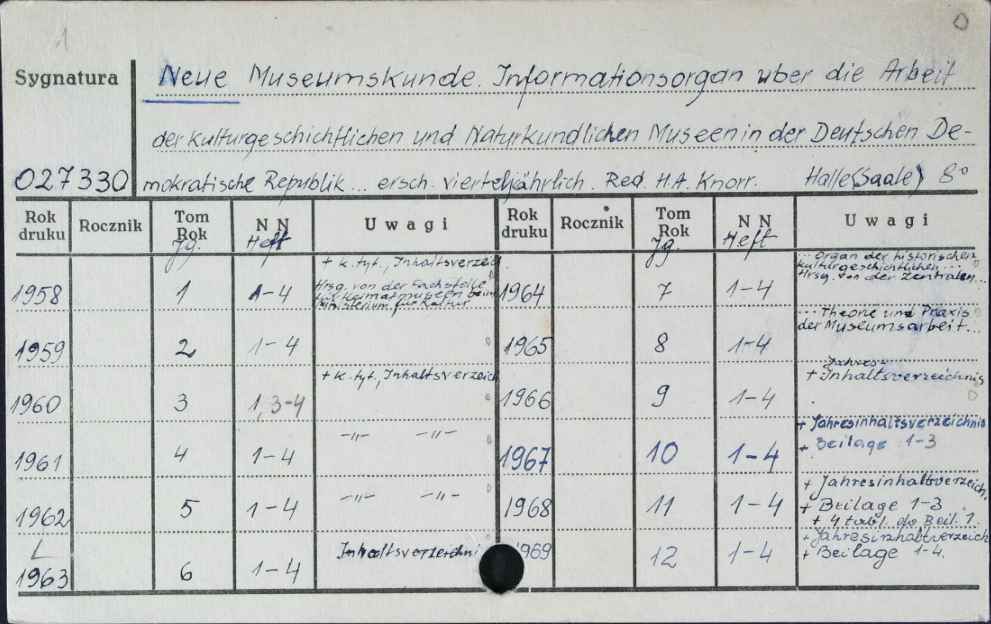 1 0
Sygnatura Neue Museumskunde. Informationsorgan uber die Arbeit
der kulturgeschichtlichen und Naturkundlichen Museen in der Deutschen De-
027330 mokratische Republik... ersch. vierteljährlich. Red. H.A. Knorr. Halle (Saale) 8°
Rok druku Rocznik Tom Rok Jg. N N Heft Uwagi Rok druku Rocznik Tom Rok Jg. N N Heft Uwagi
1958 1 1-4 + k. tyt., Inhaltsverzeich.
Hrsg. von der Fachstelle
für Heimatmuseen beim
Ministerium für Kultur
1964 7 1-4 ... Organ der historischen
kulturgeschichtlichen...
Hrsg. von der Zentralen...
1959 2 1-4
1965 8 1-4 ... Theorie und Praxis
der Museumsarbeit...
1960 3 1, 3-4 + k. tyt., Inhaltsverzeich
1966 9 1-4 Jahres:
+ Inhaltsverzeichnis
1961 4 1-4 -"- -"-
1967 10 1-4 + Jahresinhaltsverzeichnis
+ Beilage 1-3
1962 5 1-4 -"- -"-
1968 11 1-4 + Jahresinhaltsverzeich.
+ Beilage 1-3
+ 4 tabl. do Beil. 1.
1963 6 1-4 Inhaltsverzeichni
1969 12 1-4 + Jahresinhaltsverzeich
+ Beilage 1-4.